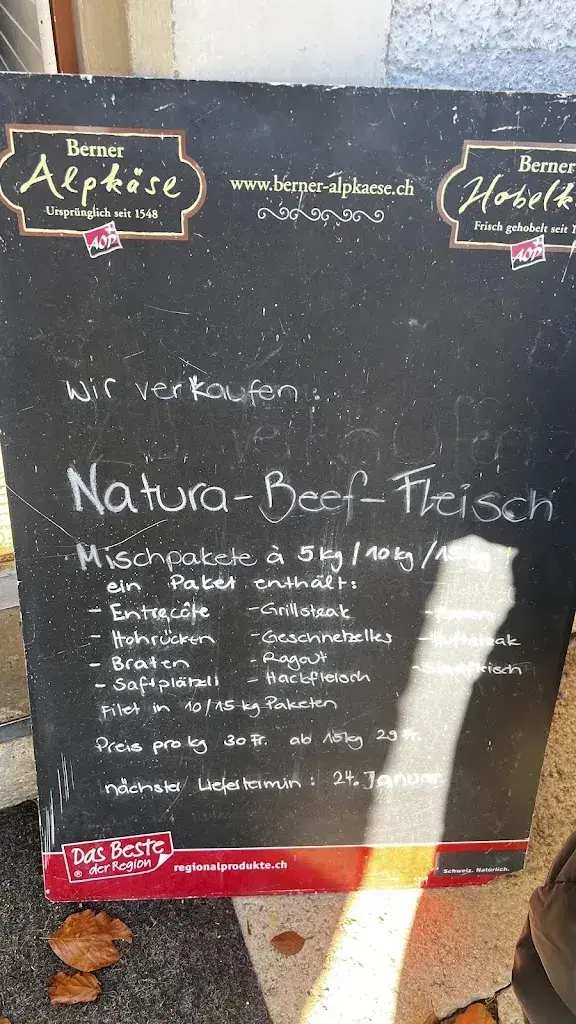 Berner
Alpkäse
Ursprünglich seit 1548
AOP
www.berner-alpkaese.ch
Berner
Frisch gehobelt seit
AOP
Wir verkaufen:
Zu verkaufen
Natura-Beef-Fleisch
Mischpakete à 5kg/10kg/15kg
ein Paket enthält:
- Entrecôte - Grillsteak
- Hohrücken - Geschnetzeltes - Huftsteak
- Braten - Ragout
- Saftplätzli - Hackfleisch
Filet in 10/15kg Paketen
Preis pro kg 30 Fr. ab 15kg 29 Fr.
nächster Liefertermin: 24. Januar
Das Beste
der Region
regionalprodukte.ch
Schweiz. Natürlich.